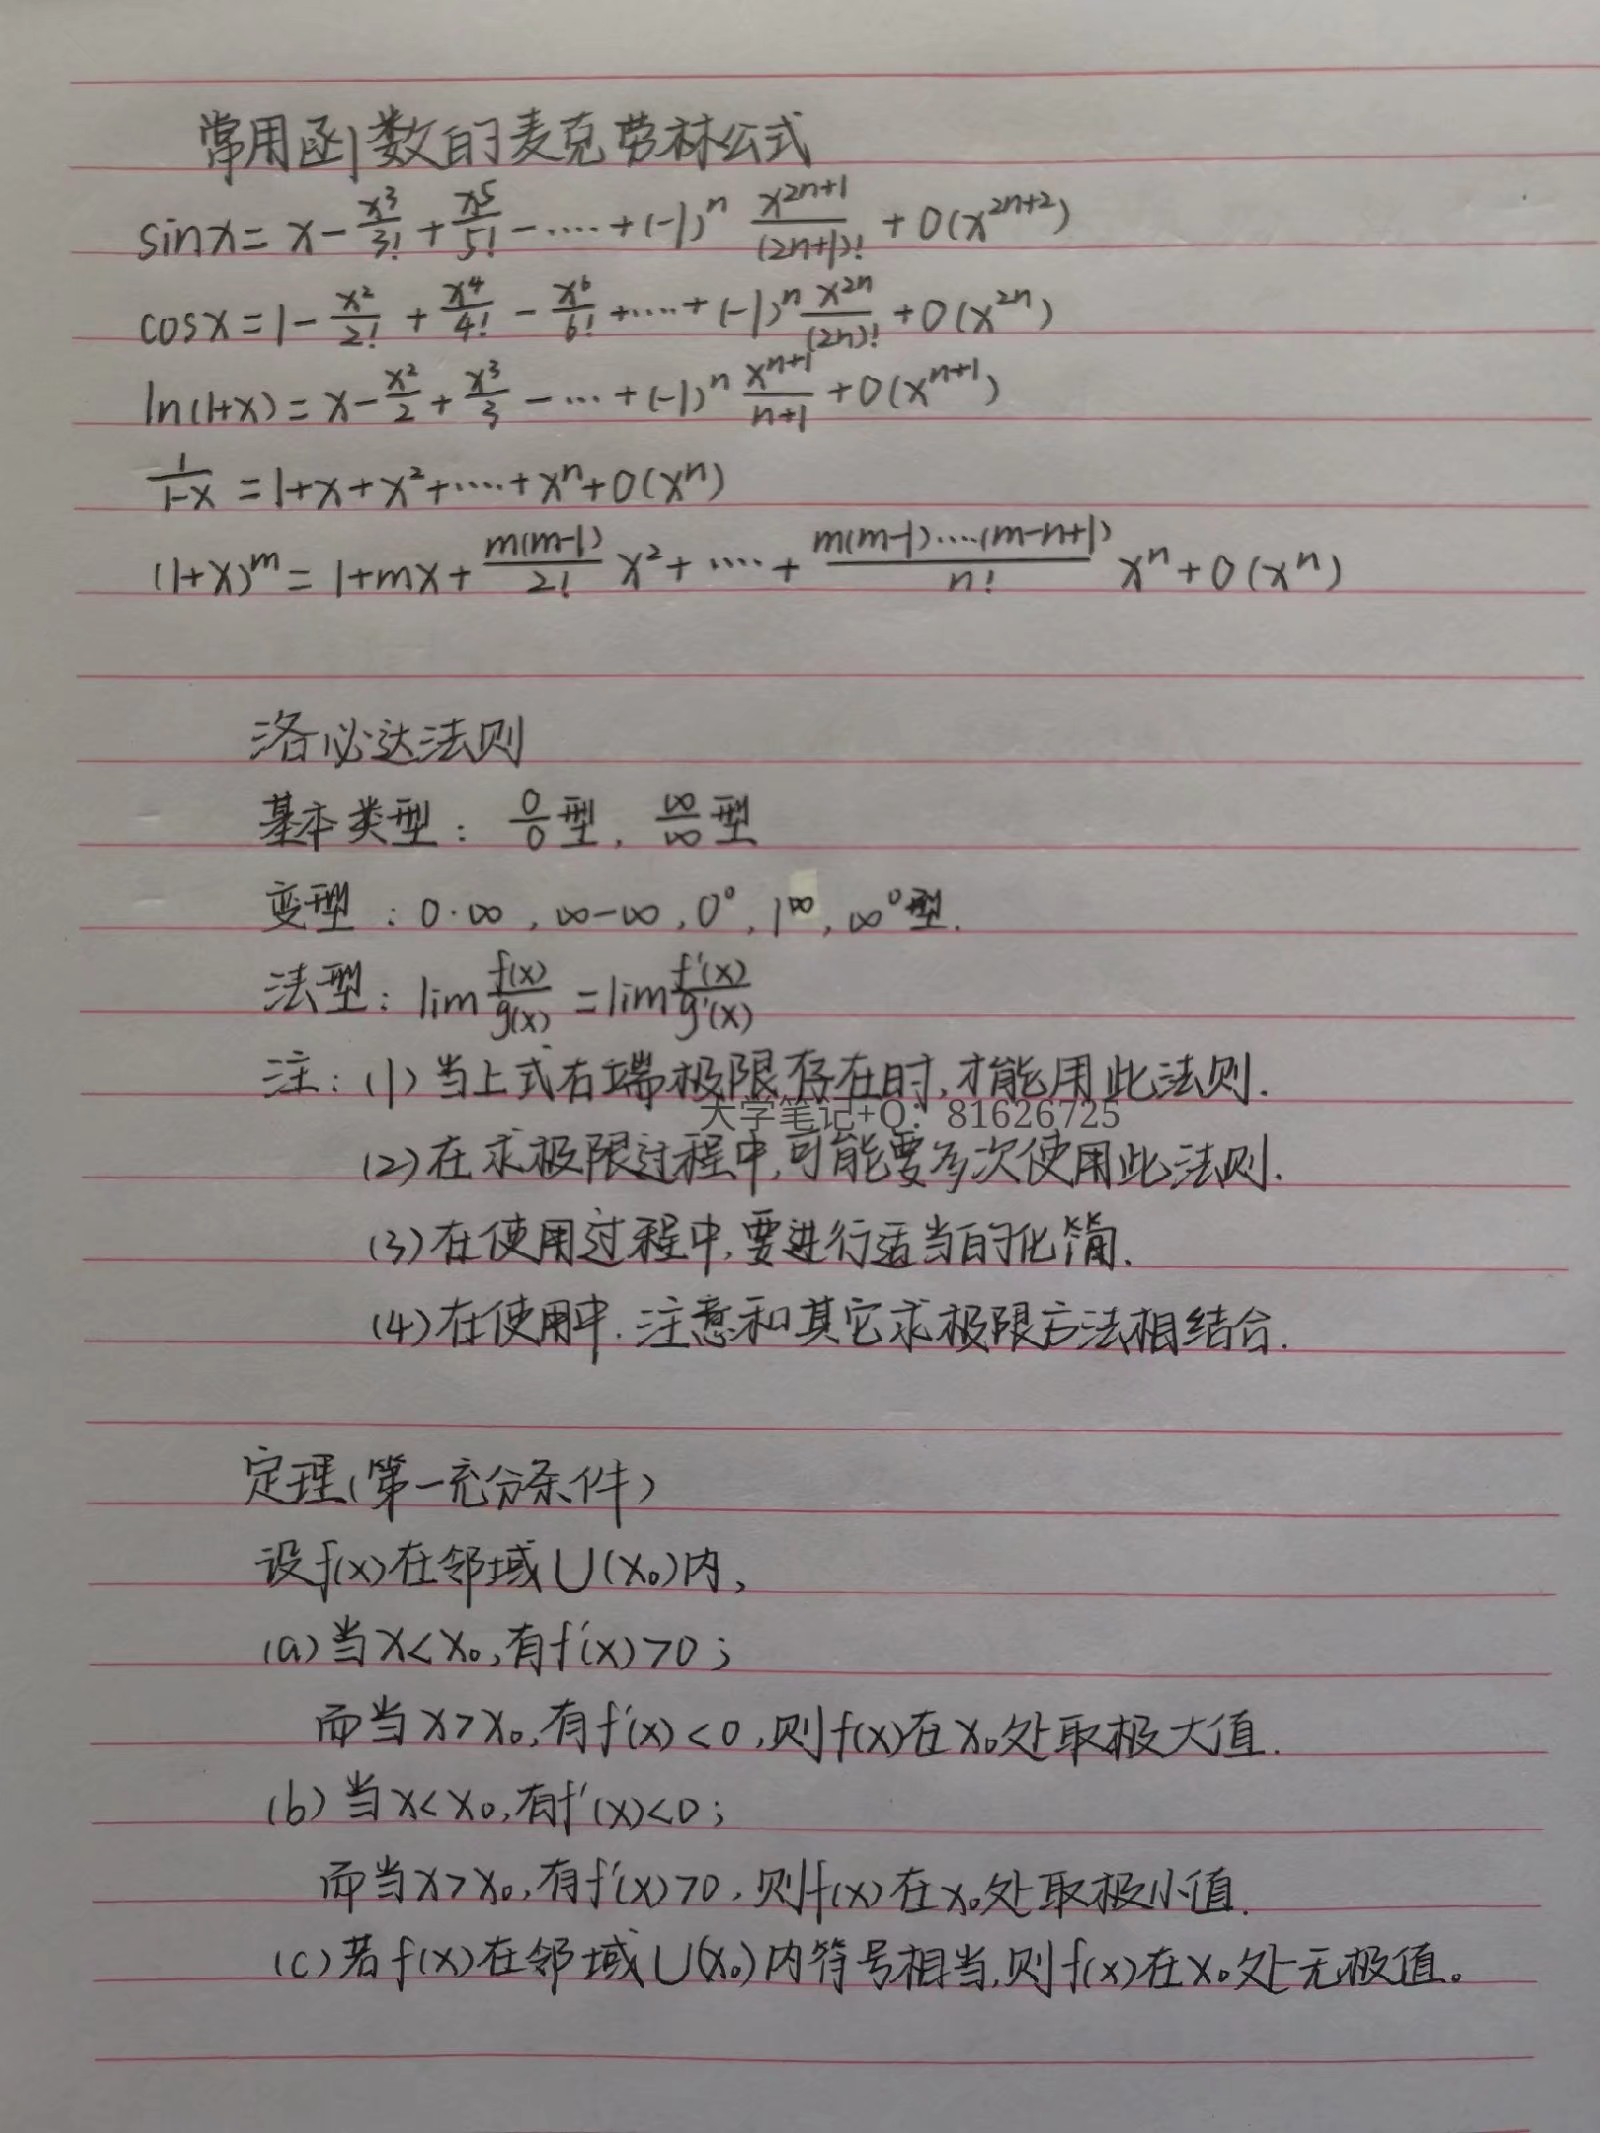 常用函数的麦克劳林公式
sinx = x - x³/3! + x⁵/5! - ····· + (-1)ⁿ x²ⁿ⁺¹/(2n+1)! + 0(x²ⁿ⁺²)
cosx = 1 - x²/2! + x⁴/4! - x⁶/6! + ····· + (-1)ⁿ x²ⁿ/(2n)! + 0(x²ⁿ)
ln(1+x) = x - x²/2 + x³/3 - ···· + (-1)ⁿ xⁿ⁺¹/n+1 + 0(xⁿ⁺¹)
1/1-x = 1+x+x²+·····+xⁿ+0(xⁿ)
(1+x)ᵐ = 1+mx+ m(m-1)/2! x² + ····· + m(m-1)····(m-n+1)/n! xⁿ + 0(xⁿ)
洛必达法则
基本类型: 0/0型, ∞/∞型
变型: 0·∞, ∞-∞, 0⁰, 1^∞, ∞⁰型.
法型: lim f(x)/g(x) = lim f'(x)/g'(x)
注: (1) 当上式右端极限存在时,才能用此法则.
大学笔记+Q: 81626725
(2) 在求极限过程中,可能要多次使用此法则.
(3) 在使用过程中,要进行适当的化简.
(4) 在使用中.注意和其它求极限方法相结合.
定理(第一充分条件)
设f(x)在邻域U(x₀)内,
(a) 当x<x₀,有f'(x)>0;
而当x>x₀,有f'(x)<0,则f(x)在x₀处取极大值.
(b) 当x<x₀,有f'(x)<0;
而当x>x₀,有f'(x)>0,则f(x)在x₀处取极小值.
(c) 若f(x)在邻域U(x₀)内符号相当,则f(x)在x₀处无极值。